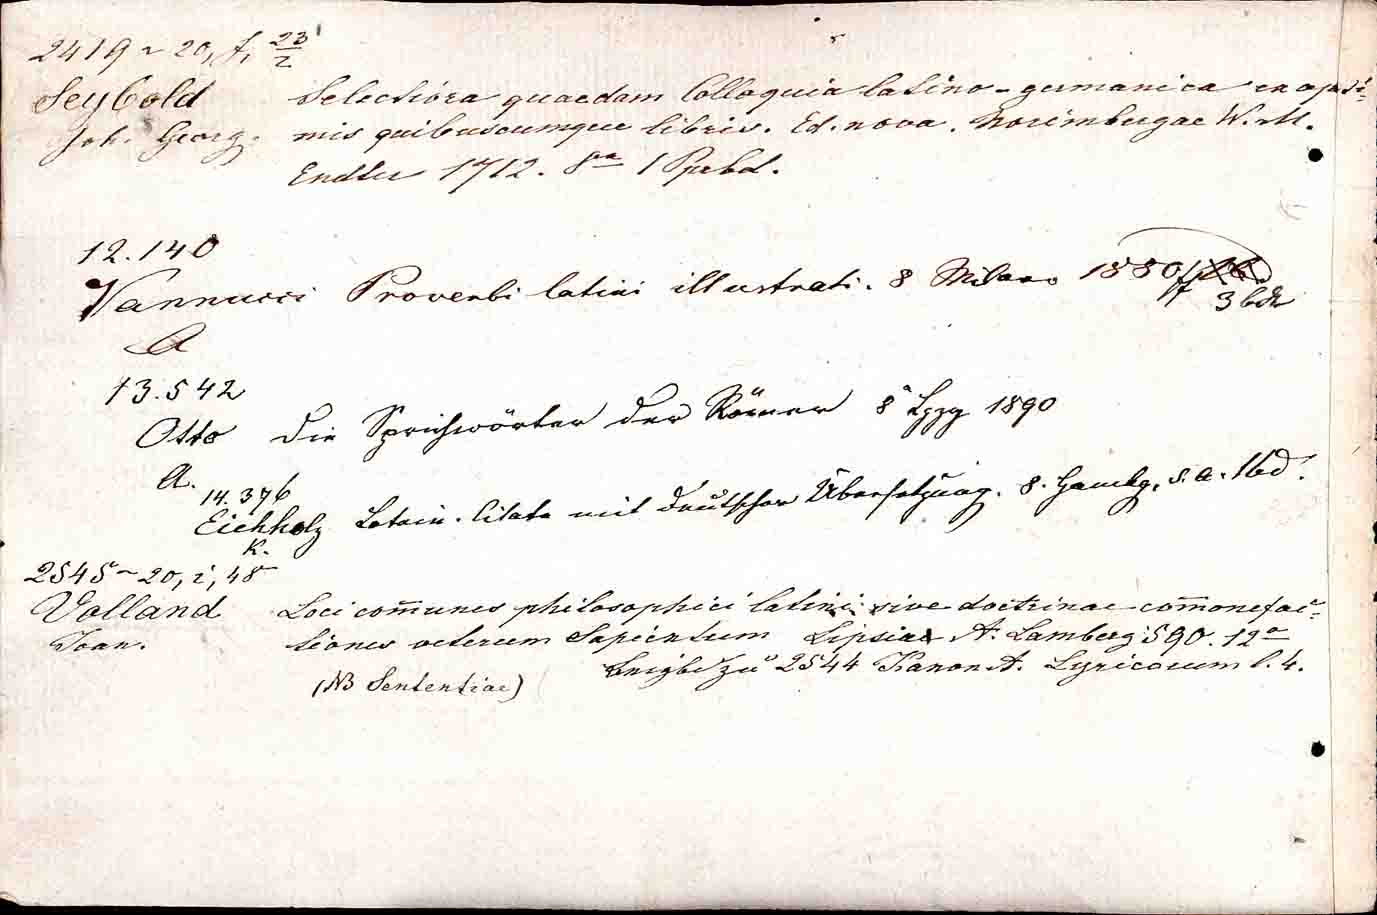 2419 ~ 20, f, 23/2
Seybold Selectiora quaedam Colloquia latino-germanica ex opti-
Joh. Georg. mis quibuscumque libris. Ed. nova. Norimbergae W. M.
Endter 1712. 8vo 1 Pprbd.
12.140
Vannucci Proverbi latini illustrati. 8 Milano 1880
3 bde
A
13.542
Otto Die Sprichwörter der Römer 8° Lpzg 1890
A.
14.376
Eichholz Latein. Citate mit deutscher Übersetzung. 8. Hambg. s.a. 1 bd.
K.
2545 ~ 20, i, 48
Volland Loci com̄unes philosophici latini sive doctrinae com̄onefac-
Joan. tiones veterum Sapientum Lipsiae A. Lamberg 590. 12°
Beigbd zu 2544 Lyricorum l. 4.
(NB Sententiae)